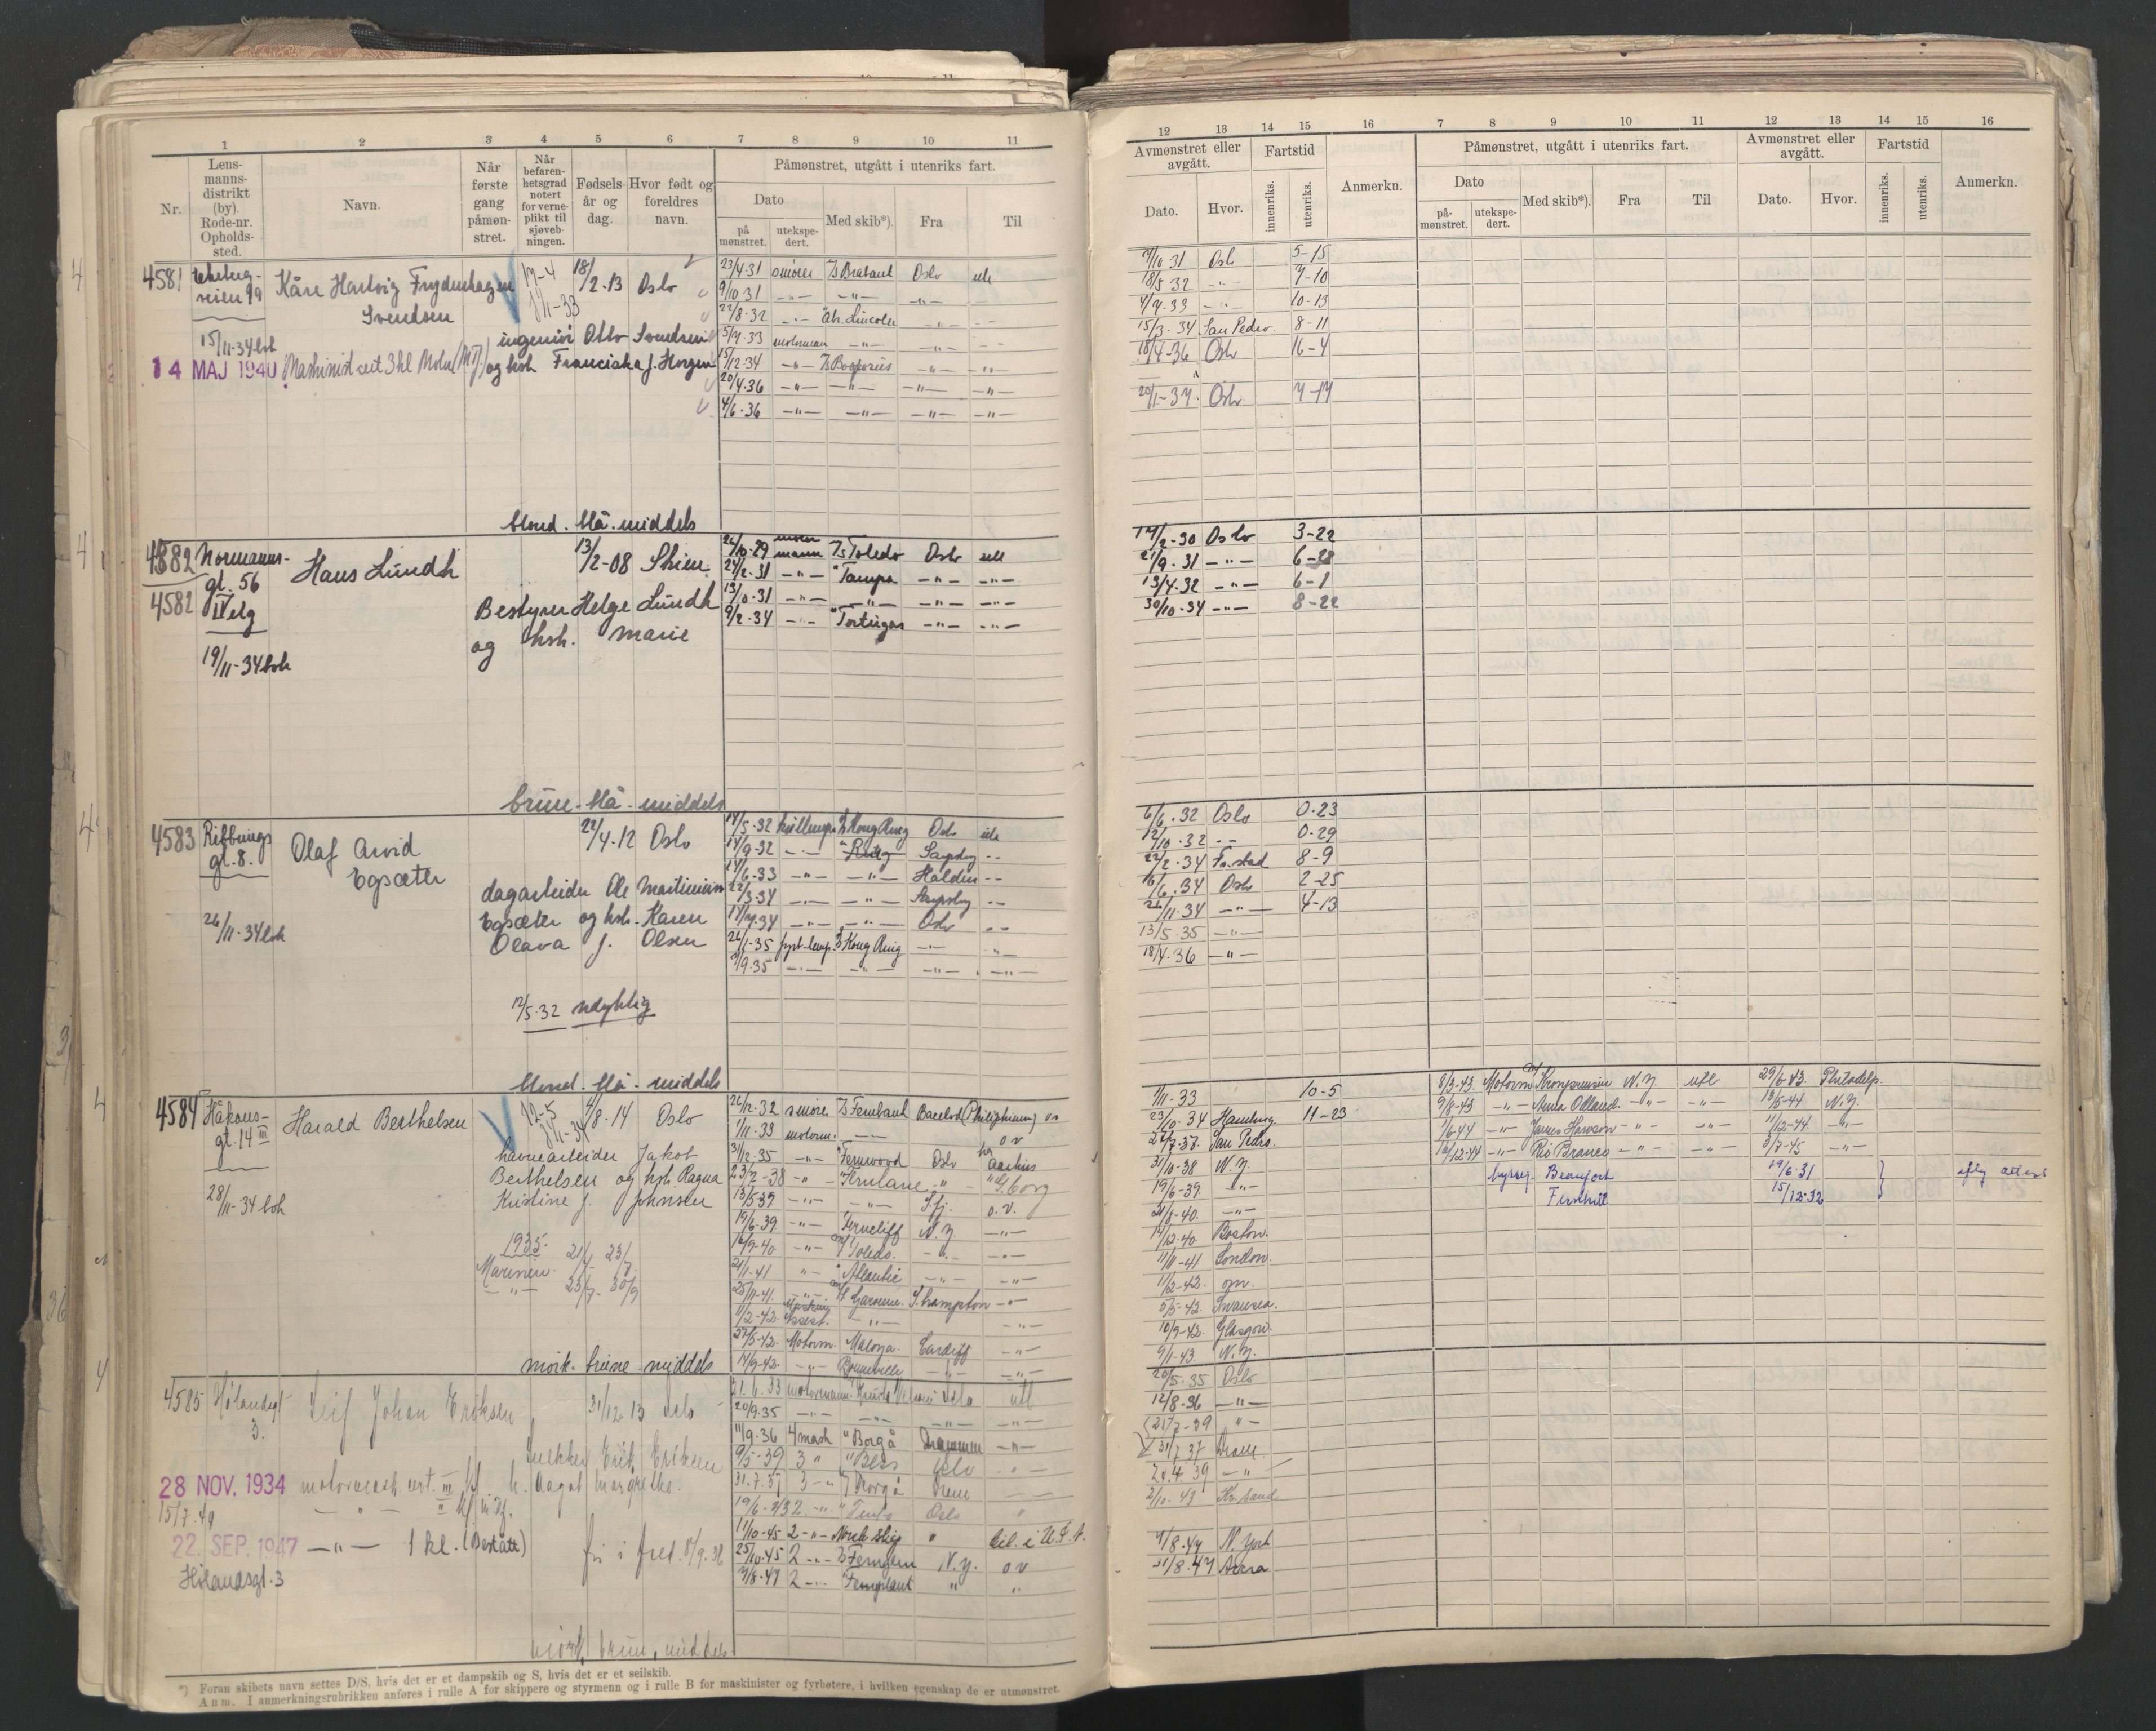 1 2 3 4 5 6 7 8 9 10 11
Nr.
Lens-
manns-
distrikt
(by).
Rode-nr.
Opholds-
sted.
Navn.
Når
første
gang
påmøn-
stret.
Når
befaren-
hetsgrad
notert
for verne-
plikt til
sjøveb-
ningen.
Fødsels-
år og
dag.
Hvor født og
foreldres
navn.
Påmønstret, utgått i utenriks fart.
Dato
på
mønstret.
utekspe-
dert.
Med skib*).
Fra
Til
4581 Ekeberg-
veien 99
Kåre Hartvig Frydenhagen
Svendsen
17-4
8/11-33
18/2-13 Oslo
15/11-34 bok
ingeniør Otto Svendsen
14 MAJ 1940 Maskinist cert 3 kl Motor og hsh Franciska f. Horgen
23/4-31 smører Brabant Oslo utl
9/10 31 -"- -"- -"-
22/8-32 -"- Ab. Lincoln -"- -"-
5/9-33 motorman -"- -"-
15/12-34 -"- Bosporus -"- -"-
20/4-36 -"- -"- -"- -"-
4/6-36 -"- -"- -"- -"-
blond. blå. middels
4882 Normanns-
gt. 56
4582
19/11-34 bok
Hans Lundh
13/2-08 Skien
Bestyrer Helge Lundh
og hsh. Marie
26/10-29 mann Toledo Oslo utl
24/2-31 -"- Tampa -"- -"-
13/10-31 -"- -"- -"- -"-
9/2-34 -"- Tortugas -"- -"-
brun. blå. middels
4583 Ribbungs
gt. 8.
26/11-34 bok
Olaf Arvid
Egsæter
22/4-12 Oslo
dagarbeider Ole Martinius
Egsæter og hsh. Karen
Olava f. Olsen
12/5-32 udyktig
14/5-32 Kong Ring Oslo utl
14/9-32 -"- Ring Sarpsbg -"-
14/6-33 -"- -"- Halden -"-
22/3-34 -"- -"- Sarpsbg -"-
14/7-34 -"- -"- Oslo -"-
26/1-35 fyrb.lemp. Kong Ring -"- -"-
-"- -"- -"- -"-
blond. blå. middels
4584 Håkons-
gt. 14 III
28/11-34 bok
Harald Berthelsen
12-5
8/11-34
4/8-14 Oslo
havnearbeider Jakob
Berthelsen og hsh. Ragna
Kristine f. Johnsen
1935
Marinen
26/12-32 smører Fernbank
1/11-33 motorm. -"- o v
31/12-35 -"- Fernwood Oslo Aarhus
23/7-38 -"- Fernlane -"- G.borg
13/5-39 -"- -"- o.v.
19/6-39 -"- Ferncliff N.Y. -"-
16/9-40 -"- Toledo. -"- -"-
21/1-41 -"- Atlantic -"- -"-
25/11-41. -"- Garonne. S.hampton -"-
11/2-42 Assist. -"- -"-
27/5-42 Motorm. Maloja Cardiff -"-
14/9-42. -"- Bonneville -"- -"-
mørk. brune. middels
4585 Hølandsgt
3.
Leif Johan Eriksen
31/12 13 Oslo
snekker Erik Eriksen
28 NOV. 1934 motormask. cert. III kl. h. Dagot Margrethe
15/7-40
22. SEP. 1947 -"- 1 kl. (Bestått)
Hølandsgt. 3
21.6.33 motormann Knute Nelson Oslo utl
20/9.35 -"- -"- -"- -"-
11/9-36 4 mask Borgå Drammen -"-
9/5-39 3 " Bess Oslo -"-
31.7.37 3 -"- Borgå Dram -"-
19/6 2 -"- Oslo
11/10-45 2 -"- " til. i U.S.A.
25/10-45 2 -"- Ferngien N.Y. o v
7/8-47 2 -"- Fernplant " "
mørk, brun, middels
*) Foran skibets navn settes D/S, hvis det er et dampskib og S, hvis det er et seilskib.
Anm. I anmerkningsrubrikken anføres i rulle A for skippere og styrmenn og i rulle B for maskinister og fyrbøtere, i hvilken egenskap de er utmønstret.
12 13 14 15 16 7 8 9 10 11 12 13 14 15 16
Avmønstret eller
avgått.
Fartstid
Dato.
Hvor.
innenriks.
utenriks.
Anmerkn.
Påmønstret, utgått i utenriks fart.
Dato
på-
mønstret.
utekspe-
dert.
Med skib*).
Fra
Til
Avmønstret eller
avgått.
Dato.
Hvor.
Fartstid
innenriks.
utenriks.
Anmerkn.
7/10 31 Oslo 5-15
18/5 32 -"- 7-10
4/7.33 -"- 10-13
15/3-34 San Pedro 8-11
18/4-36 Oslo 16-4
20/1-37 Oslo 7-17
17/2-30 Oslo 3-22
21/9-31 -"- 6-28
13/4.32 -"- 6-1
30/10-34 -"- 8-22
6/6.32 Oslo 0-23
12/10.32 -"- 0.29
22/2.34 Fr.stad 8-9
16/6.34 Oslo 2-25
26/11.34 -"- 4-13
13/5-35 -"-
18/4.36 -"-
1/11-33 10-5
23/10.34 Hamburg 11-23
27/7-37. San Pedro.
31/10-38 N.Y.
19/6-39. -"-
21/8-40. -"-
14/12-40. Boston.
11/11-41 London.
11/2-42. opr.
5/5-42. Swansea.
10/9-42. Glasgow.
9/1-43. N.Y.
20/5-35 Oslo
12/8-36 -"-
21/7-39 "
31/7 37 Dram.
24.4 39 -"-
2/10-43 Kr.sand
7/8-47 N. York
31/8.47 Accra
8/3-43. Motorm Kronprinsen N.Y. utl 29/6-43. Philadelp.
9/8-43 -"- Anna Odland. -"- -"- 18/5-44 N.Y.
1/6-44 -"- James Hawson -"- -"- 11/12-44. -"-
16/12-44 -"- Rio Branco -"- -"- 3/7-45 -"-
byssg. Beaufort 29/6.31
Fernhill 15/12-32
iflg attest